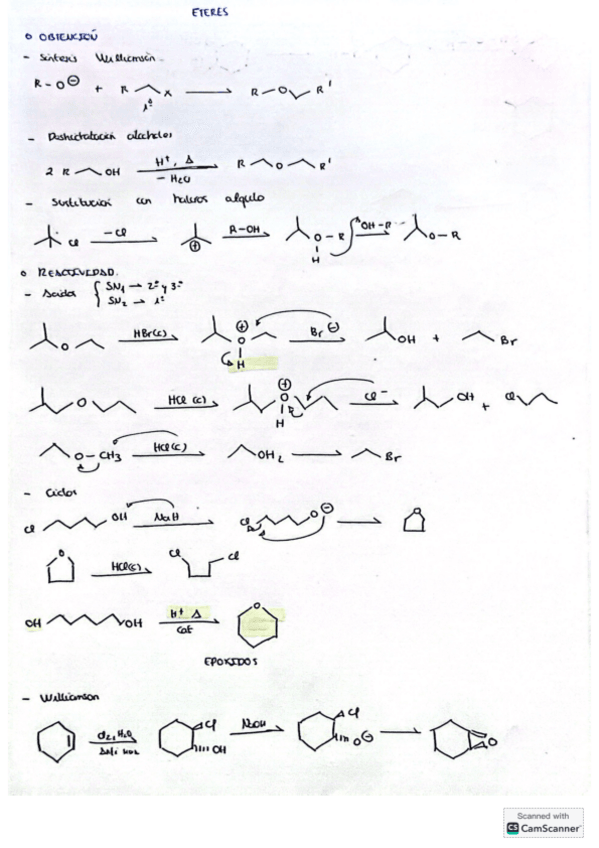 ETERES
OBTENCIÓN
- Síntesis Williamson
R-O⊖ + R X R O R'
1º
- Deshidratación alcoholes
2 R OH H+, Δ R O R'
- H2O
- Sustitución con haluros alquilo
Cl -Cl ⊕ R-OH O-R OH-R O-R
H
REACTIVIDAD.
- Acidos { SN1 → 2º y 3º
SN2 → 1º
O HBr(c) ⊕ O Br⊖ OH + Br
H
O HCl (c) ⊕ O Cl- OH + Cl
H
O-CH3 HCl(c) OH2 Br
- Ciclos
Cl OH NaH Cl O⊖ O
O HCl(c) Cl Cl
OH OH H+ Δ O
cat
EPOXIDOS
- Williamson
Cl2, H2O Cl NaOH Cl O
OH O⊖
Scanned with
CS CamScanner